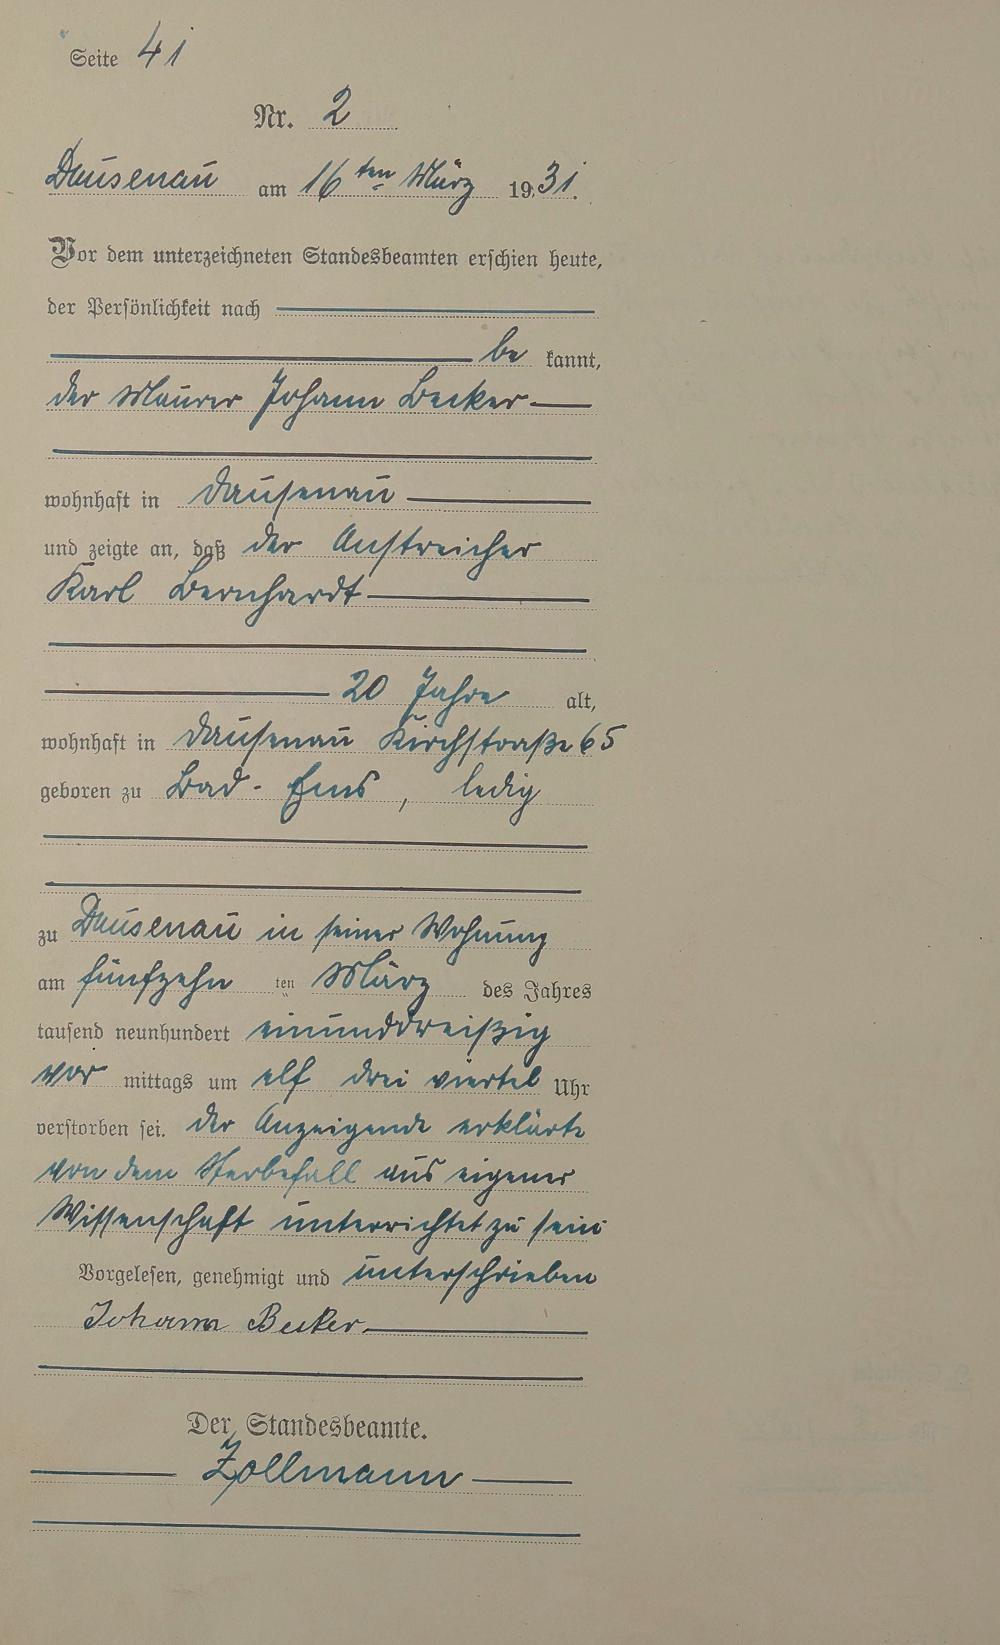 Seite 41
Nr. 2
Dausenau am 16ten März 1931.
Vor dem unterzeichneten Standesbeamten erschien heute,
der Persönlichkeit nach
be kannt,
der Maurer Johann Becker
wohnhaft in Dausenau
und zeigte an, daß der Anstreicher
Karl Bernhardt
20 Jahre alt,
wohnhaft in Dausenau Kirchstraße 65
geboren zu Bad-Ems, ledig
zu Dausenau in seiner Wohnung
am fünfzehn ten März des Jahres
tausend neunhundert einunddreißig
vor mittags um elf drei viertel Uhr
verstorben sei. der Anzeigende erklärte
von dem Sterbefall aus eigener
Wissenschaft unterrichtet zu sein
Vorgelesen, genehmigt und unterschrieben
Johann Becker.
Der Standesbeamte.
Zollmann